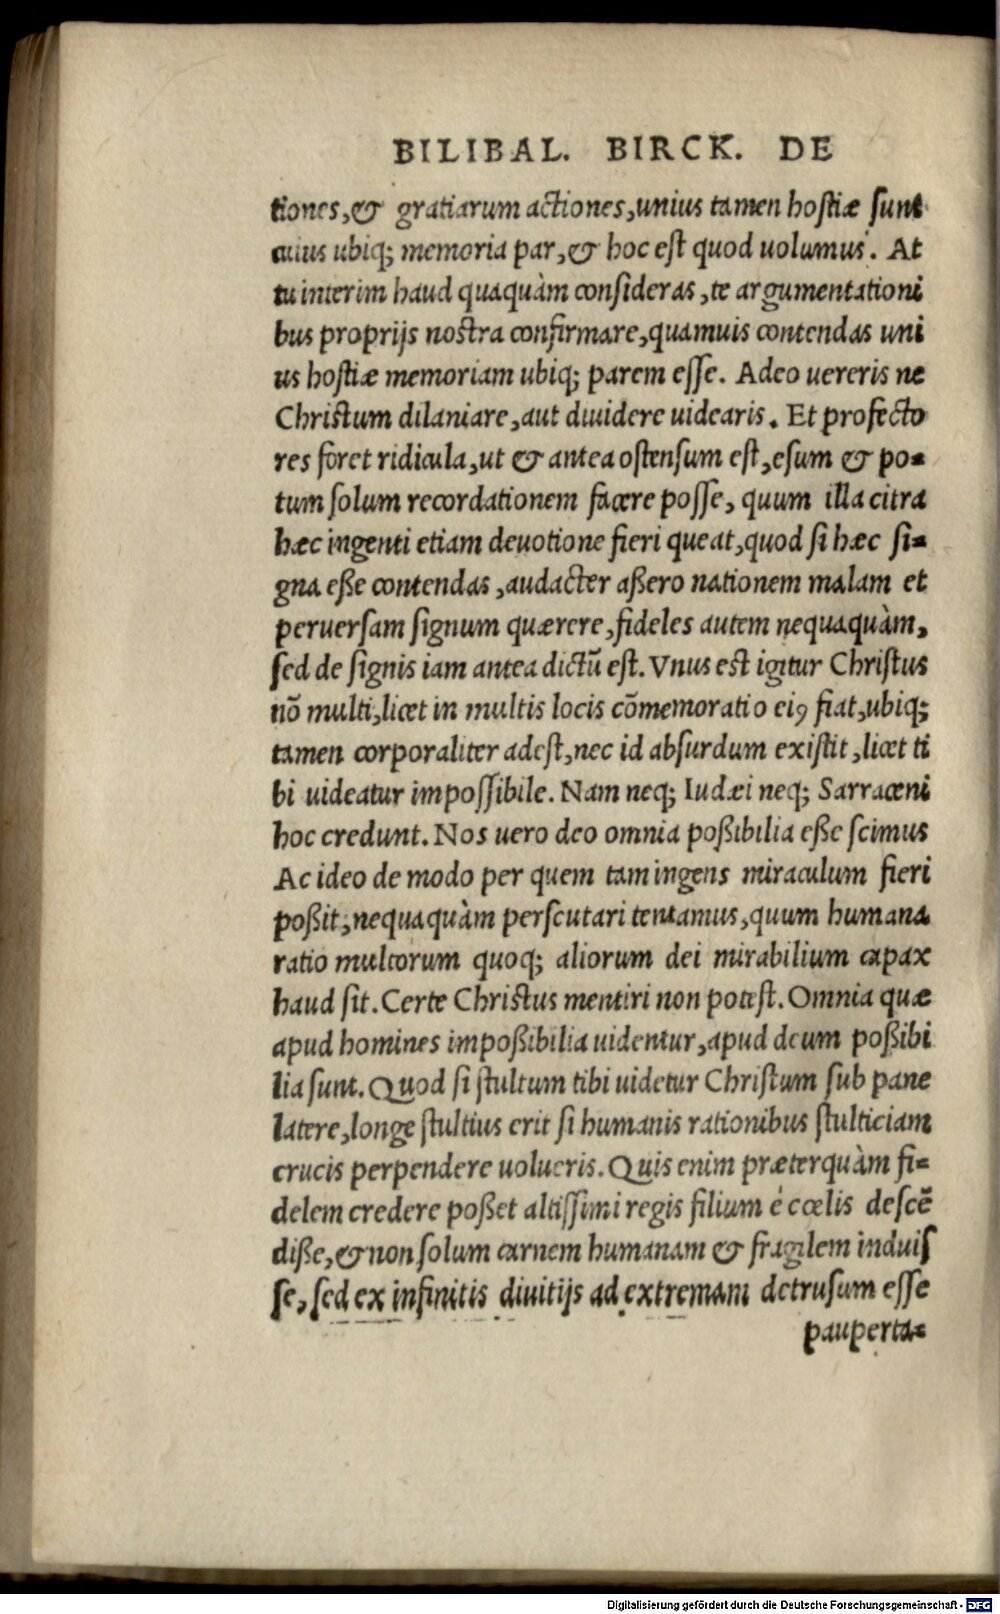 BILIBAL. BIRCK. DE
tiones, & gratiarum actiones, unius tamen hostiæ sunt
cuius ubiq; memoria par, & hoc est quod uolumus. At
tu interim haud quaquàm consideras, te argumentationi
bus proprijs nostra confirmare, quamuis contendas uni
us hostiæ memoriam ubiq; parem esse. Adeo uereris ne
Christum dilaniare, aut diuidere uidearis. Et profecto
res foret ridicula, ut & antea ostensum est, esum & po=
tum solum recordationem facere posse, quum illa citra
hæc ingenti etiam deuotione fieri queat, quod si hæc si=
gna eße contendas, audacter aßero nationem malam et
peruersam signum quærere, fideles autem nequaquàm,
sed de signis iam antea dictũ est. Vnus est igitur Christus
nõ multi, licet in multis locis cõmemoratio eiꝰ fiat, ubiq;
tamen corporaliter adest, nec id absurdum existit, licet ti
bi uideatur impossibile. Nam neq; Iudæi neq; Sarraceni
hoc credunt. Nos uero deo omnia poßibilia eße scimus
Ac ideo de modo per quem tam ingens miraculum fieri
poßit, nequaquàm perscutari tentamus, quum humana
ratio multorum quoq; aliorum dei mirabilium capax
haud sit. Certe Christus mentiri non potest. Omnia quæ
apud homines impoßibilia uidentur, apud deum poßibi
lia sunt. Quod si stultum tibi uidetur Christum sub pane
latere, longe stultius erit si humanis rationibus stulticiam
crucis perpendere uolueris. Quis enim præterquàm fi=
delem credere poßet altissimi regis filium è cœlis descẽ
diße, & non solum carnem humanam & fragilem induis
se, sed ex infinitis diuitijs ad extremam detrusum esse
pauperta=
Digitalisierung gefördert durch die Deutsche Forschungsgemeinschaft - DFG